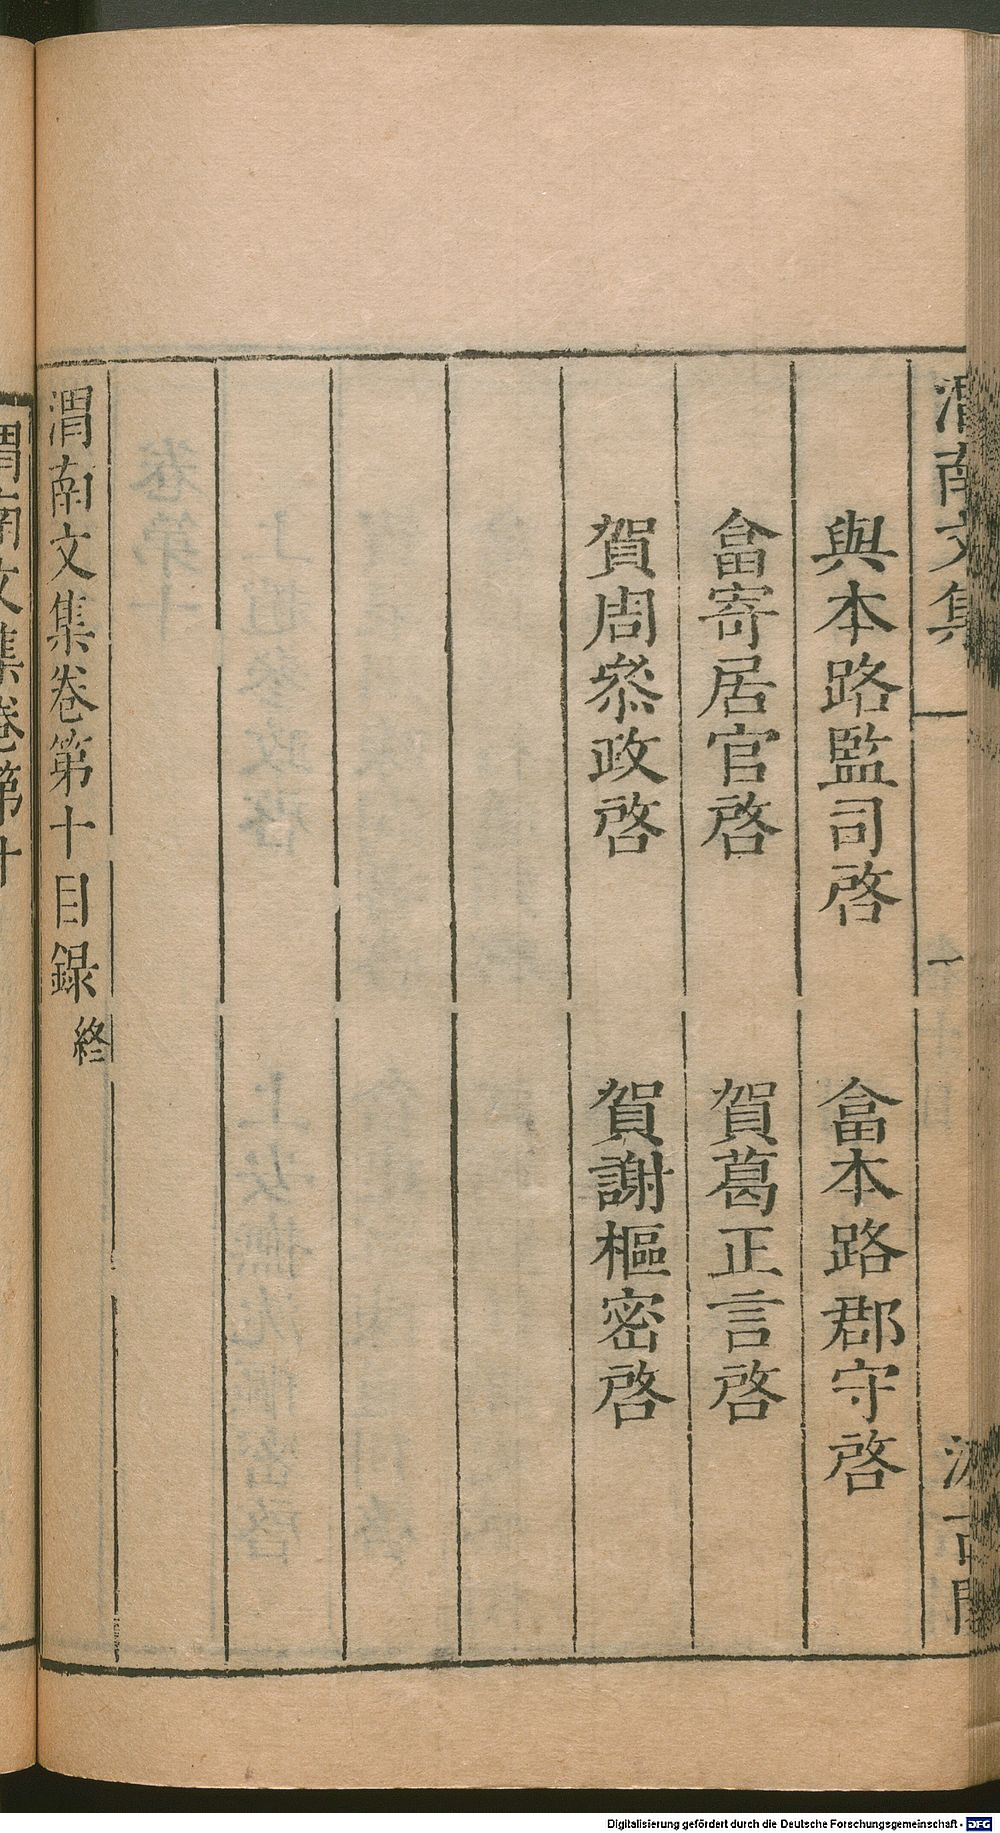 渭南文集
汲古閣
與本路監司啓
畣本路郡守啓
畣寄居官啓
賀葛正言啓
賀周叅政啓
賀謝樞密啓
渭南文集卷第十目録終
渭南文集卷第十
Digitalisierung gefördert durch die Deutsche Forschungsgemeinschaft - DFG